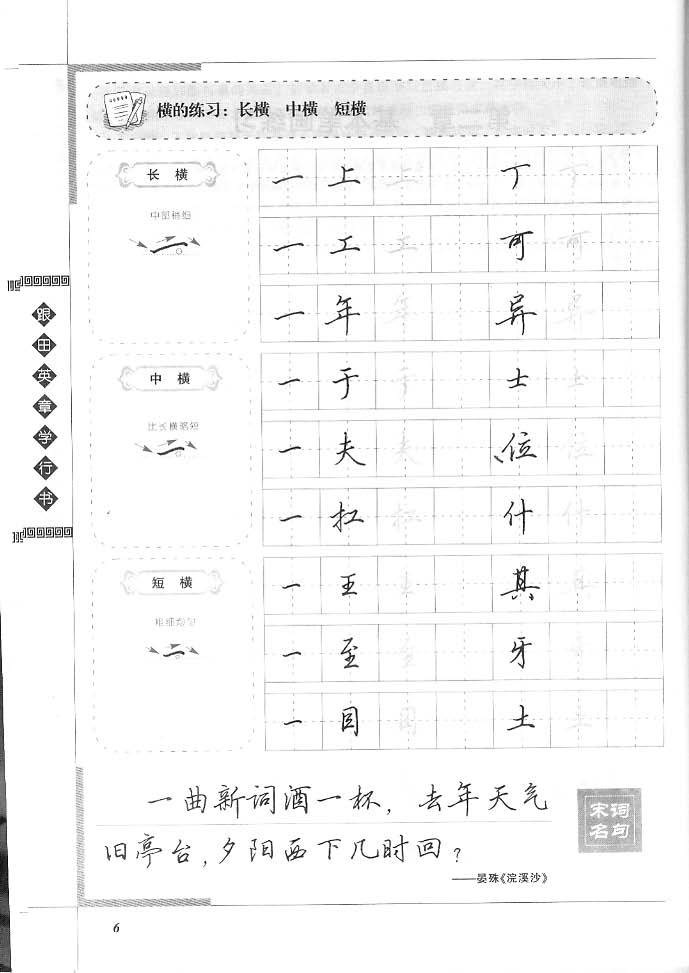 横的练习：长横 中横 短横
跟田英章学行书
长横
中部稍细
一 上 上 丁 丁
一 工 工 可 可
一 年 年 异 异
中横
比长横略短
一 于 于 士 士
一 夫 夫 位 位
一 扛 扛 什 什
短横
粗细均匀
一 王 王 其 其
一 至 至 牙 牙
一 因 因 土 土
一曲新词酒一杯，去年天气
旧亭台，夕阳西下几时回？
——晏殊《浣溪沙》
宋词
名句
6